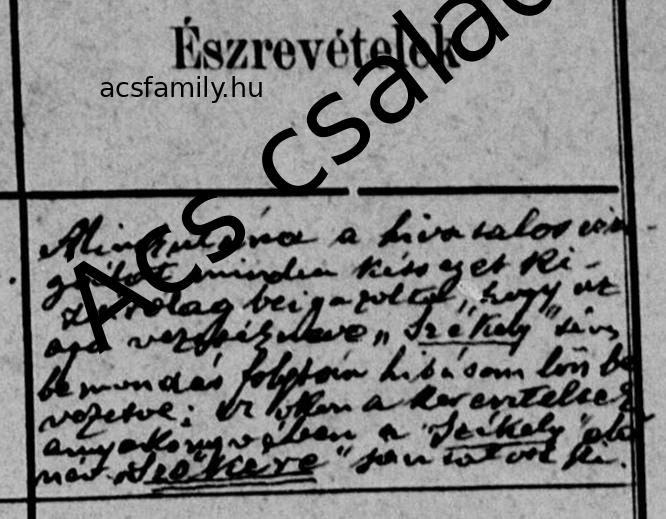 Észrevételek
acsfamily.hu
Ács család
Mintutána a hivatalos vizs-
gálat minden kétséget ki-
zárólag beigazolta, hogy az
apa vezetékneve „Székely" téves
bemondás folytán hibásan lőn be
vezetve; ez okon a keresteltek
anyakönyvében a "Székely"
név „Szekere" javíttatott ki.